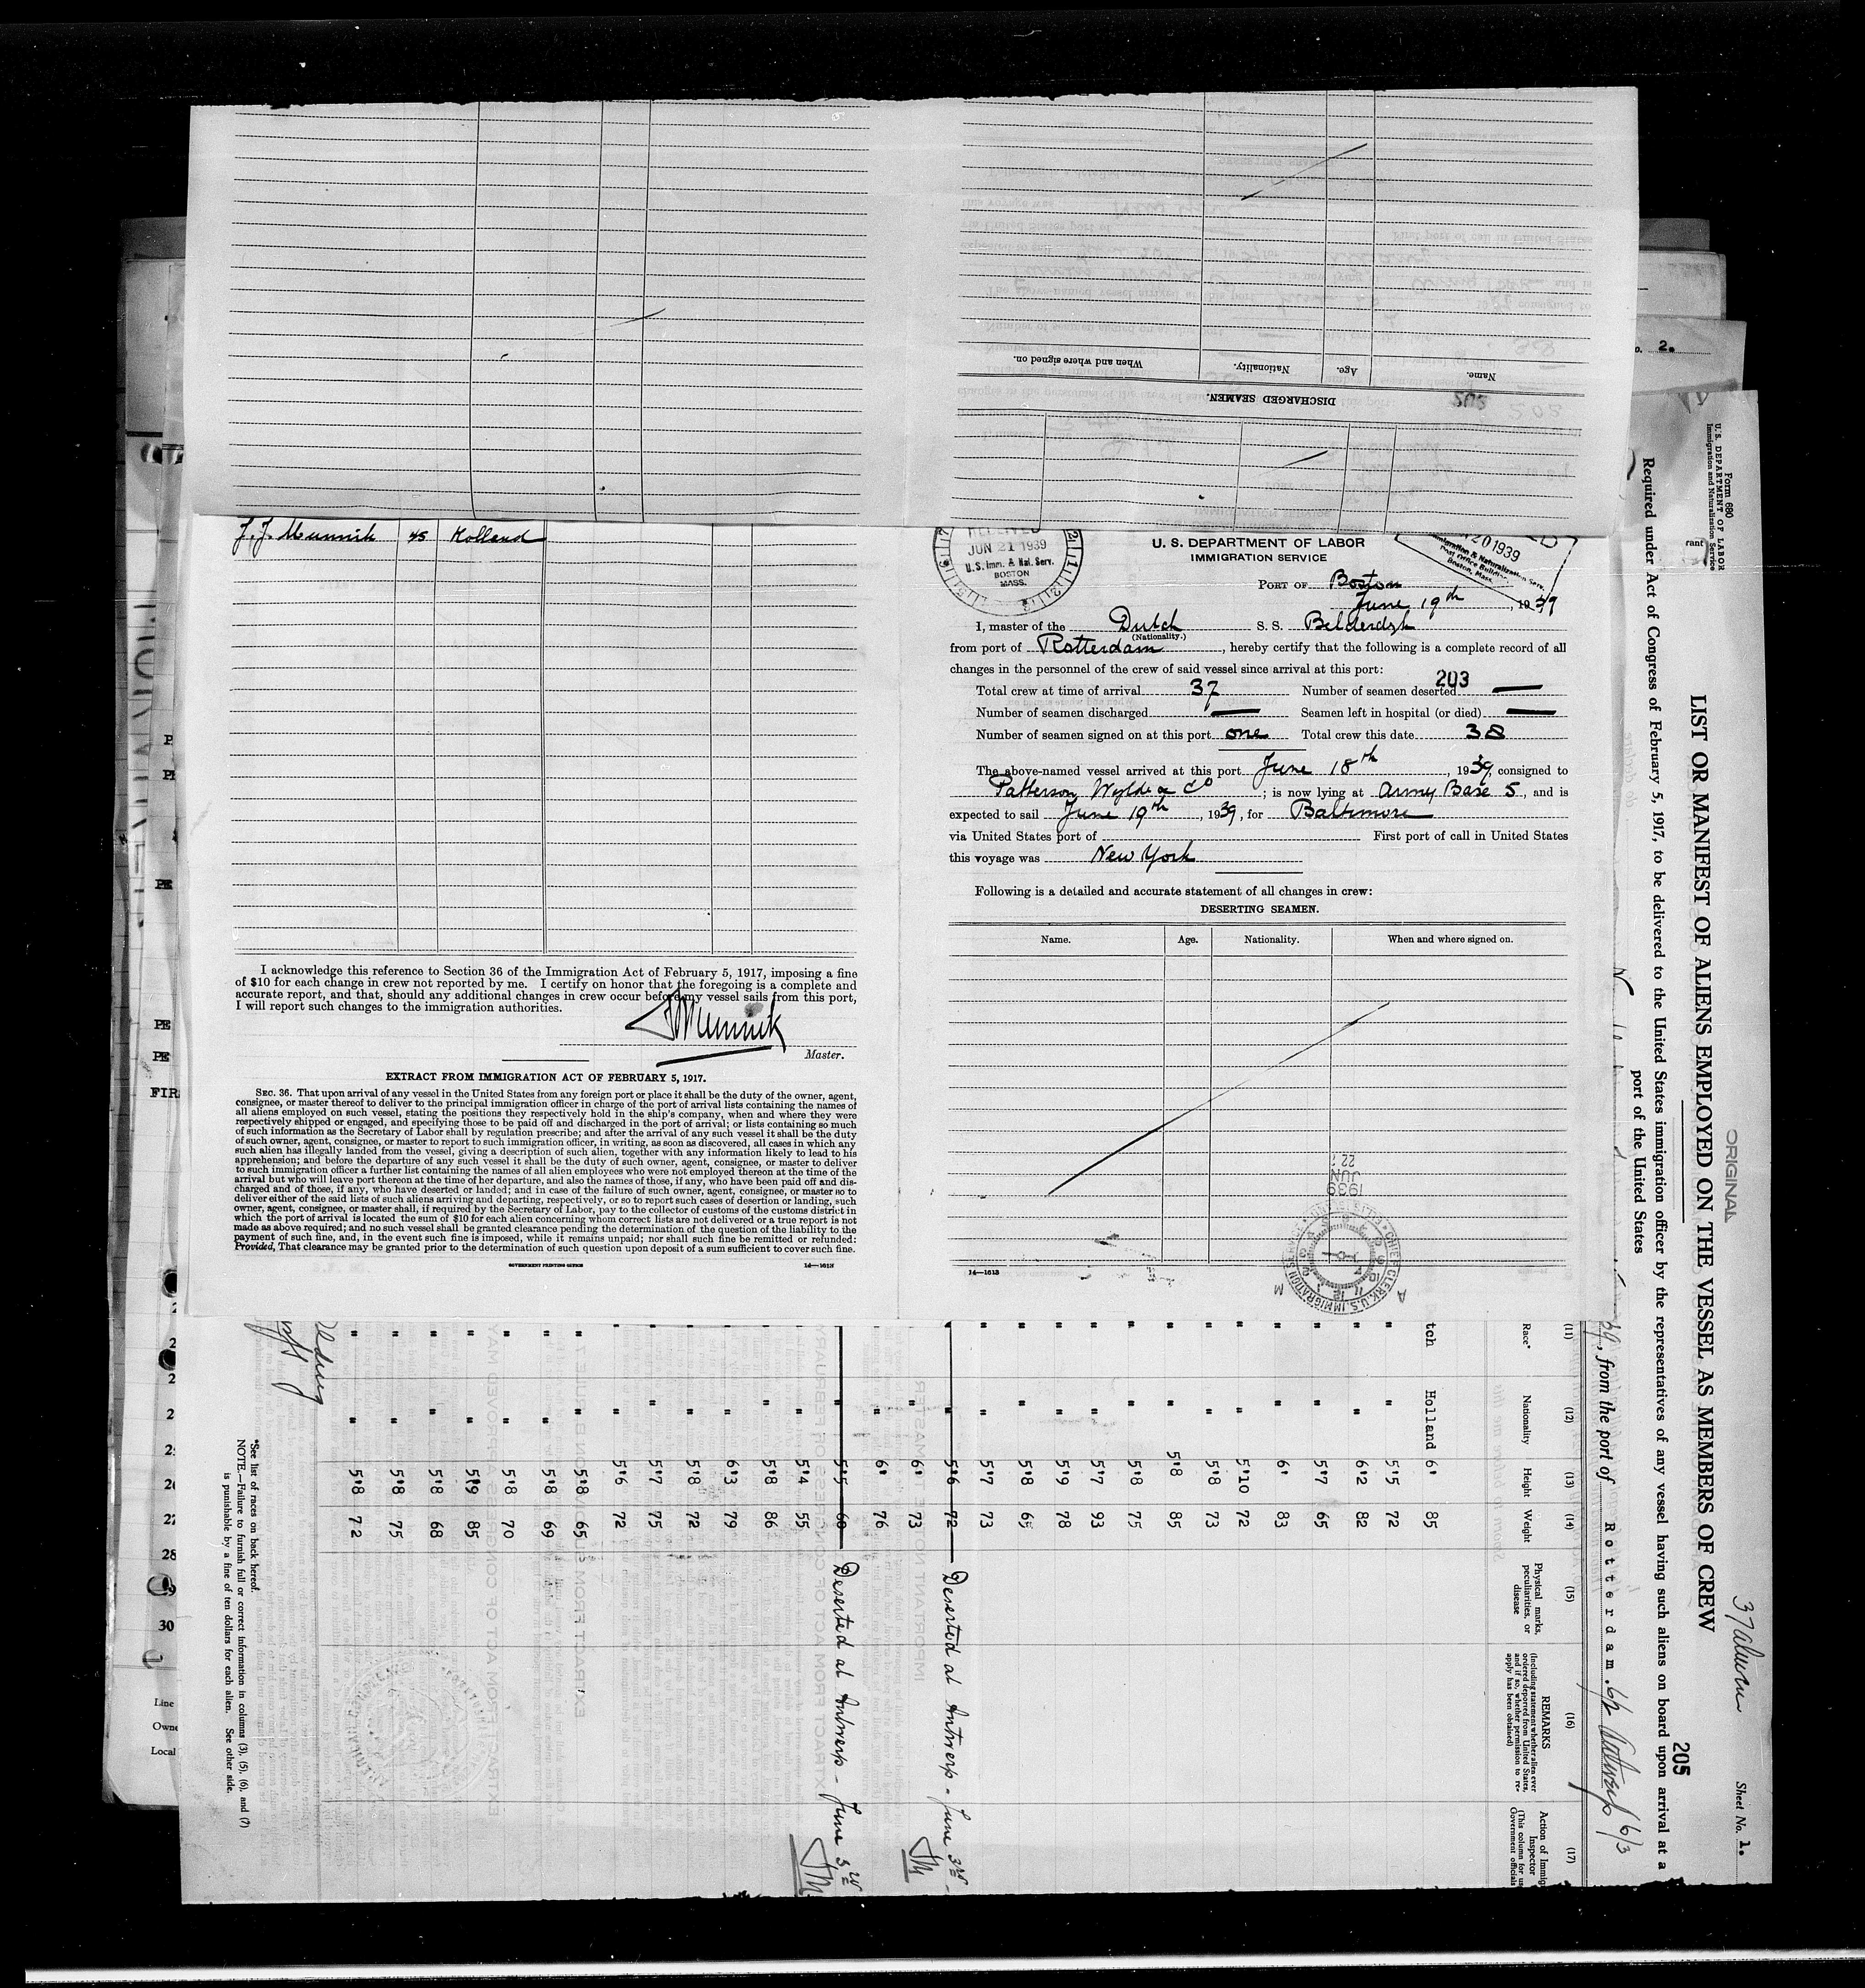 DISCHARGED SEAMEN.
Name.
Age.
Nationality.
When and where signed on.
J. J. Munnik 45 Holland
I acknowledge this reference to Section 36 of the Immigration Act of February 5, 1917, imposing a fine
of $10 for each change in crew not reported by me. I certify on honor that the foregoing is a complete and
accurate report, and that, should any additional changes in crew occur before my vessel sails from this port,
I will report such changes to the immigration authorities.
Munnik
Master.
EXTRACT FROM IMMIGRATION ACT OF FEBRUARY 5, 1917.
SEC. 36. That upon arrival of any vessel in the United States from any foreign port or place it shall be the duty of the owner, agent,
consignee, or master thereof to deliver to the principal immigration officer in charge of the port of arrival lists containing the names of
all aliens employed on such vessel, stating the positions they respectively hold in the ship's company, when and where they were
respectively shipped or engaged, and specifying those to be paid off and discharged in the port of arrival; or lists containing so much
of such information as the Secretary of Labor shall by regulation prescribe; and after the arrival of any such vessel it shall be the duty
of such owner, agent, consignee, or master to report to such immigration officer, in writing, as soon as discovered, all cases in which any
such alien has illegally landed from the vessel, giving a description of such alien, together with any information likely to lead to his
apprehension; and before the departure of any such vessel it shall be the duty of such owner, agent, consignee, or master to deliver
to such immigration officer a further list containing the names of all alien employees who were not employed thereon at the time of the
arrival but who will leave port thereon at the time of her departure, and also the names of those, if any, who have been paid off and dis-
charged and of those, if any, who have deserted or landed; and in case of the failure of such owner, agent, consignee, or master so to
deliver either of the said lists of such aliens arriving and departing, respectively, or so to report such cases of desertion or landing, such
owner, agent, consignee, or master shall, if required by the Secretary of Labor, pay to the collector of customs of the customs district in
which the port of arrival is located the sum of $10 for each alien concerning whom correct lists are not delivered or a true report is not
made as above required; and no such vessel shall be granted clearance pending the determination of the question of the liability to the
payment of such fine, and, in the event such fine is imposed, while it remains unpaid; nor shall such fine be remitted or refunded:
Provided, That clearance may be granted prior to the determination of such question upon deposit of a sum sufficient to cover such fine.
GOVERNMENT PRINTING OFFICE 14—1613
JUN 21 1939
U.S. Imm. & Nat. Serv.
BOSTON
MASS.
U. S. DEPARTMENT OF LABOR
IMMIGRATION SERVICE
201939
Immigration & Naturalization Serv.
Post Office Building
Boston, Mass.
PORT OF Boston
June 19th, 1939
I, master of the Dutch S. S. Belderdyk
(Nationality.)
from port of Rotterdam, hereby certify that the following is a complete record of all
changes in the personnel of the crew of said vessel since arrival at this port:
203
Total crew at time of arrival 37 Number of seamen deserted —
Number of seamen discharged — Seamen left in hospital (or died) —
Number of seamen signed on at this port one Total crew this date 38
The above-named vessel arrived at this port June 18th, 1939, consigned to
Patterson Wylde & Co; is now lying at Army Base 5, and is
expected to sail June 19th, 1939, for Baltimore
via United States port of First port of call in United States
this voyage was New York
Following is a detailed and accurate statement of all changes in crew:
DESERTING SEAMEN.
Name. Age. Nationality. When and where signed on.
1939
JUN
22
CHIEF CLERK, U.S. IMMIGRATION SERVICE
A M
14—1613
2.
Form 680
U. S. DEPARTMENT OF LABOR
Immigration and Naturalization Service
ORIGINAL
37 aliens
205
Sheet No. 1.
LIST OR MANIFEST OF ALIENS EMPLOYED ON THE VESSEL AS MEMBERS OF CREW
Required under Act of Congress of February 5, 1917, to be delivered to the United States immigration officer by the representatives of any vessel having such aliens on board upon arrival at a
port of the United States
39, from the port of Rotterdam. 6/2 Antwerp 6/3
(11) (12) (13) (14) (15) (16) (17)
Race* Nationality Height Weight
Physical marks, peculiarities, or disease
REMARKS
(Including statement whether alien ever ordered deported from United States, and if so, whether permission to re-apply has been obtained)
Action of Immig
Inspector
(This column for us
Government officials
tch Holland 6' 85
" " 5'5 72
" " 6'2 82
" " 5'7 65
" " 6' 83
" " 5'10 72
" " 5'8 73
" " 5'8 85
" " 5'8 75
" " 5'7 93
" " 5'9 78
" " 5'8
" " 5'7 73
" " 5'6 72 Deserted at Antwerp - June 3rd - JM
" " 6' 73
" " 6' 76
" " 5'5 60 Deserted at Antwerp - June 3rd JM
" " 5'4 55
" " 5'8 86
" " 6'3 79
" " 5'8 72
" " 5'7 75
" " 5'6 72
" " 5'8 65
" " 5'8 69
" " 5'8 70
" " 5'9 85
" " 5'8 68
" " 5'8 75
" " 5'8 72
*See list of races on back hereof.
NOTE.—Failure to furnish full or correct information in columns (3), (5), (6), and (7)
is punishable by a fine of ten dollars for each alien. See other side.
28
30
Line
Owne
Local